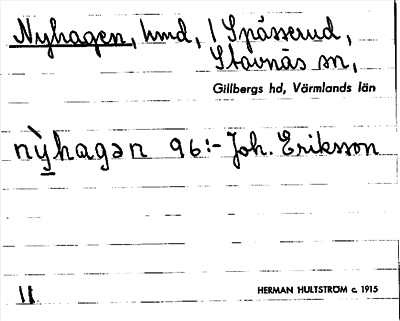 Nyhagen, hmd, 1 Spässerud,
Stavnäs sn,
Gillbergs hd, Värmlands län
nỳhagən 96:- Joh. Eriksson
11
HERMAN HULTSTRÖM c. 1915